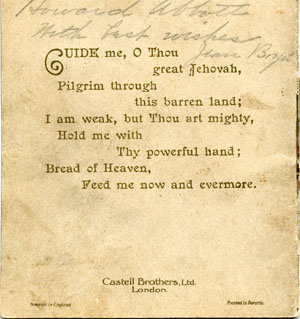 Howard Abbott
With best wishes
Jean Boyd
GUIDE me, O Thou
great Jehovah,
Pilgrim through
this barren land;
I am weak, but Thou art mighty,
Hold me with
Thy powerful hand;
Bread of Heaven,
Feed me now and evermore.
Castell Brothers, Ltd.
London.
Designed in England
Printed in Bavaria.